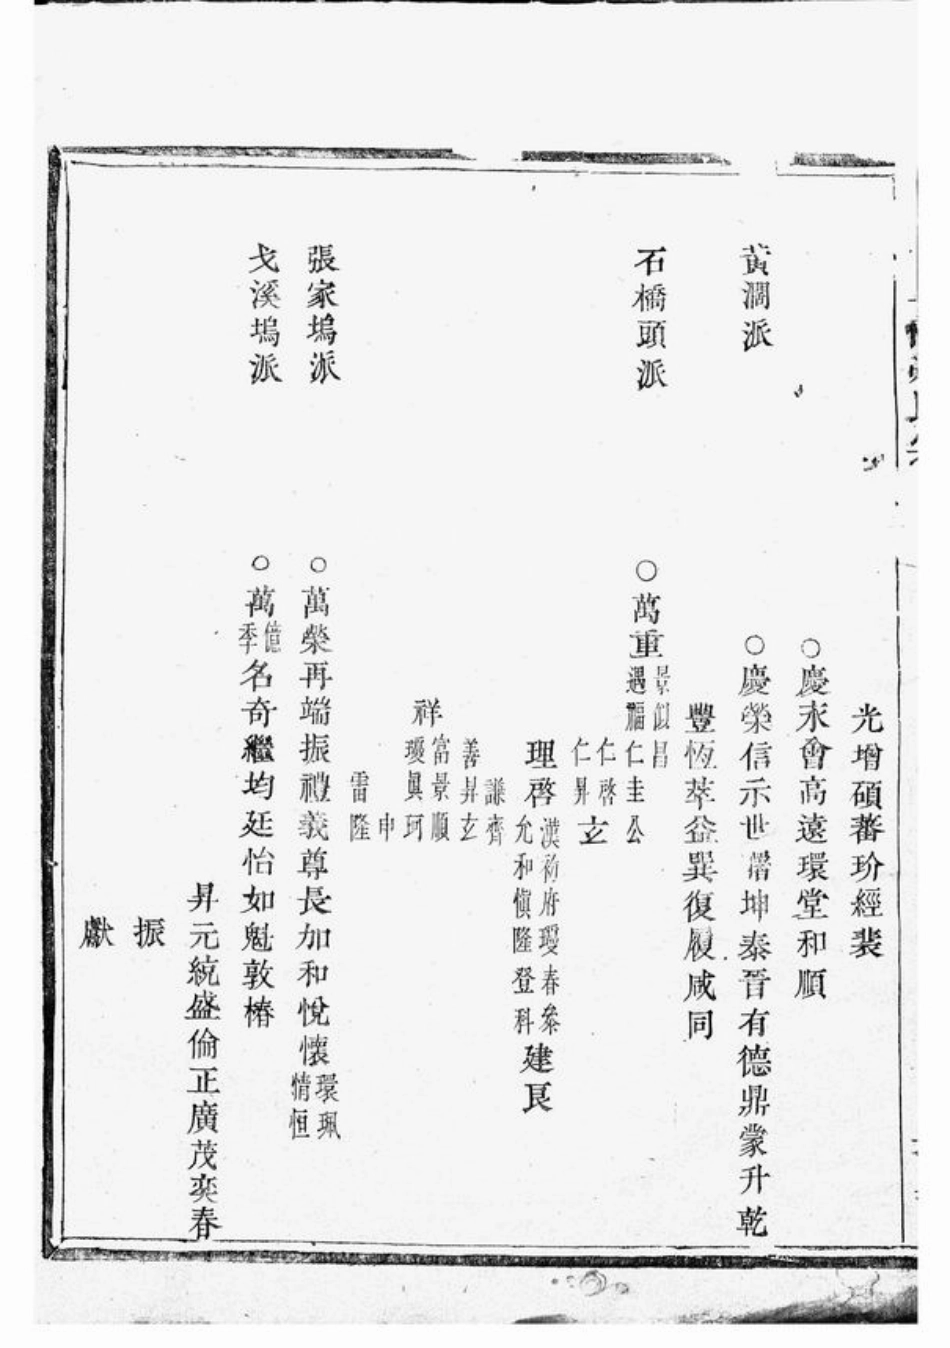 光增碩蕃玠經裴
○慶永會高遠環堂和順
黃澗派
○慶榮信示世潛坤泰晉有德鼎蒙升乾
豐恆萃益巽復履咸同
石橋頭派
○萬重
景似昌
遇福仁圭公
仁啓
仁昇玄
理啓
漢衍府瑷春叅
允和愼隆登科
建艮
謙齊
善昇玄
祥
富景順
瑷眞珂
申
雷隆
張家塢派
○萬榮再端振禮義尊長加和悅懷
環珮
情恒
戈溪塢派
○萬
億
季
名奇繼均廷怡如魁敦椿
昇元統盛倫正廣茂奕春
振
獻